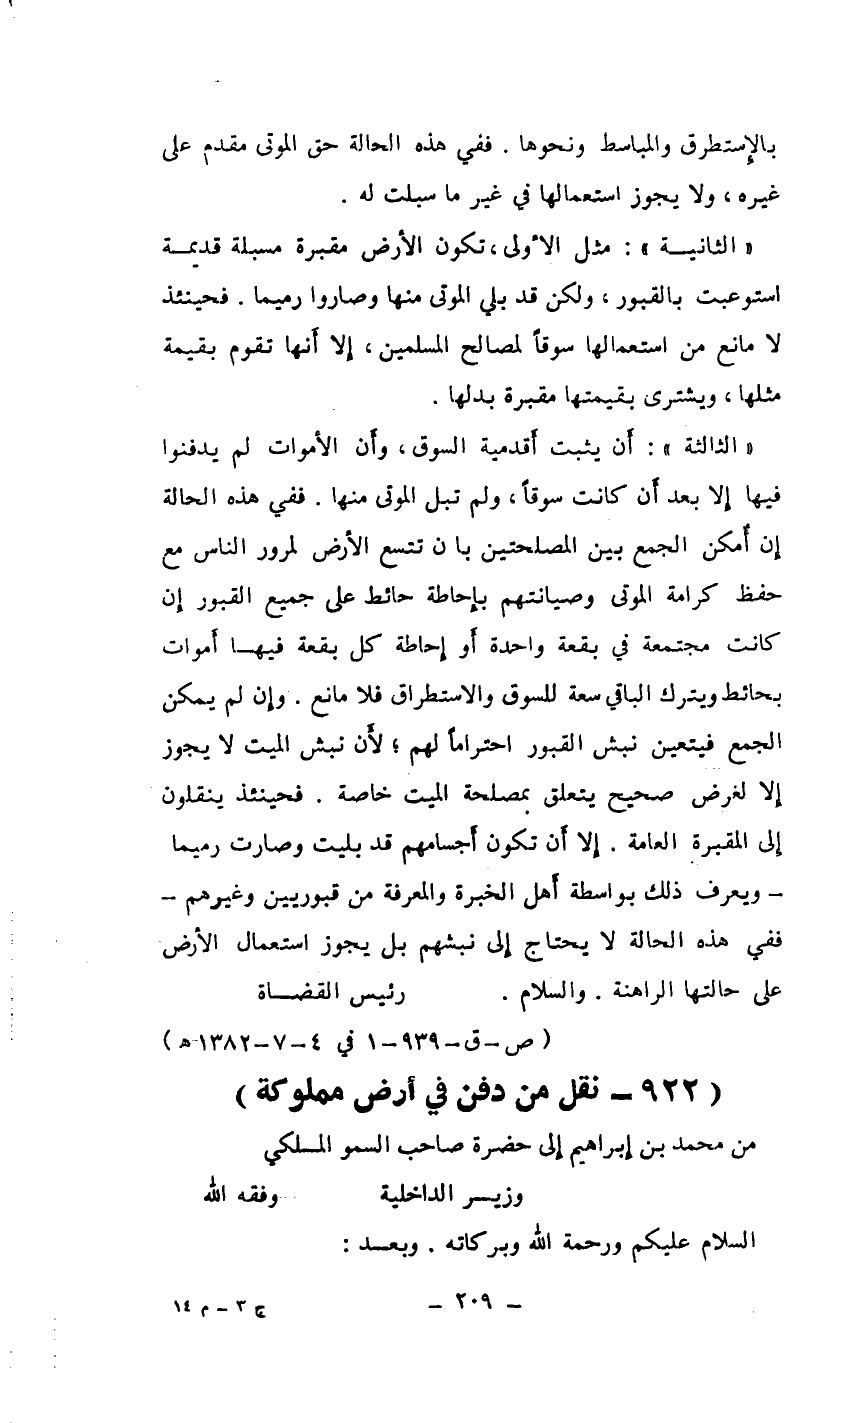 بالإستطرق والمباسط ونحوها . ففي هذه الحالة حق الموتى مقدم على
غيره ، ولا يجوز استعمالها في غير ما سبلت له .
« الثانيـــة » : مثل الأولى ، تكون الأرض مقبرة مسبلة قديمـة
استوعبت بالقبور ، ولكن قد بلي الموتى منها وصاروا رميما . فحينئذ
لا مانع من استعمالها سوقاً لمصالح المسلمين ، إلا أنها تقوم بقيمة
مثلها ، ويشترى بقيمتها مقبرة بدلها .
« الثالثة » : أن يثبت أقدمية السوق ، وأن الأموات لم يدفنوا
فيها إلا بعد أن كانت سوقاً ، ولم تبل الموتى منها . ففي هذه الحالة
إن أمكن الجمع بين المصلحتين با ن تتسع الأرض لمرور الناس مع
حفظ كرامة الموتى وصيانتهم بإحاطة حائط على جميع القبور إن
كانت مجتمعة في بقعة واحدة أو إحاطة كل بقعة فيهـا أموات
بحائط ويترك الباقي سعة للسوق والاستطراق فلا مانع . وإن لم يمكن
الجمع فيتعين نبش القبور احتراماً لهم ؛ لأن نبش الميت لا يجوز
إلا لغرض صحيح يتعلق بمصلحة الميت خاصة . فحينئذ ينقلون
إلى المقبرة العامة . إلا أن تكون أجسامهم قد بليت وصارت رميما
– ويعرف ذلك بواسطة أهل الخبرة والمعرفة من قبوريين وغيرهم –
ففي هذه الحالة لا يحتاج إلى نبشهم بل يجوز استعمال الأرض
على حالتها الراهنة . والسلام . رئيس القضـــاة
( ص–ق–٩٣٩–١ في ٤–٧–١٣٨٢هـ )
( ٩٢٢ – نقل من دفن في أرض مملوكة )
من محمد بن إبراهيم إلى حضرة صاحب السمو الملكي
وزيـــر الداخلية وفقه الله
السلام عليكم ورحمة الله وبركاته . وبعـــد :
– ٢٠٩ –
ج ٣ – م ١٤